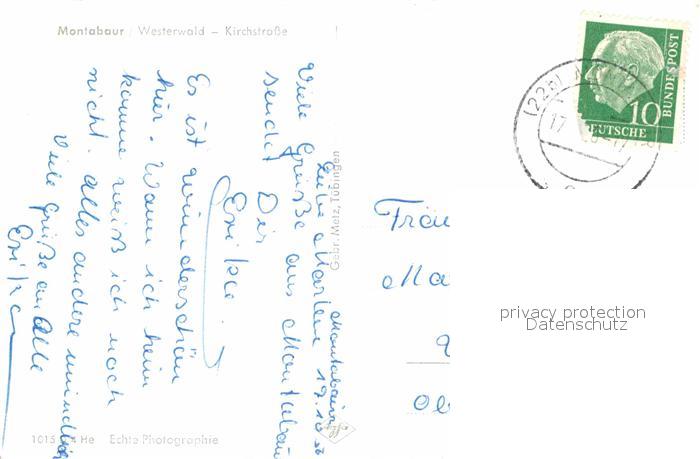 Montabaur / Westerwald – Kirchstraße
Montabaur 17.10.56
Liebe Marlene
Viele Grüße aus Montabaur
sendet Dir
Erika.
Es ist wunderschön
hier. Wann ich heim
komme weiß ich noch
nicht. Alles andere mündlich
Viele Grüße an Alle
Erika
Gebr. Metz, Tübingen
1015 He Echte Photographie
(22b)
17
10
DEUTSCHE
BUNDESPOST
Fräu
Ma
privacy protection
Datenschutz